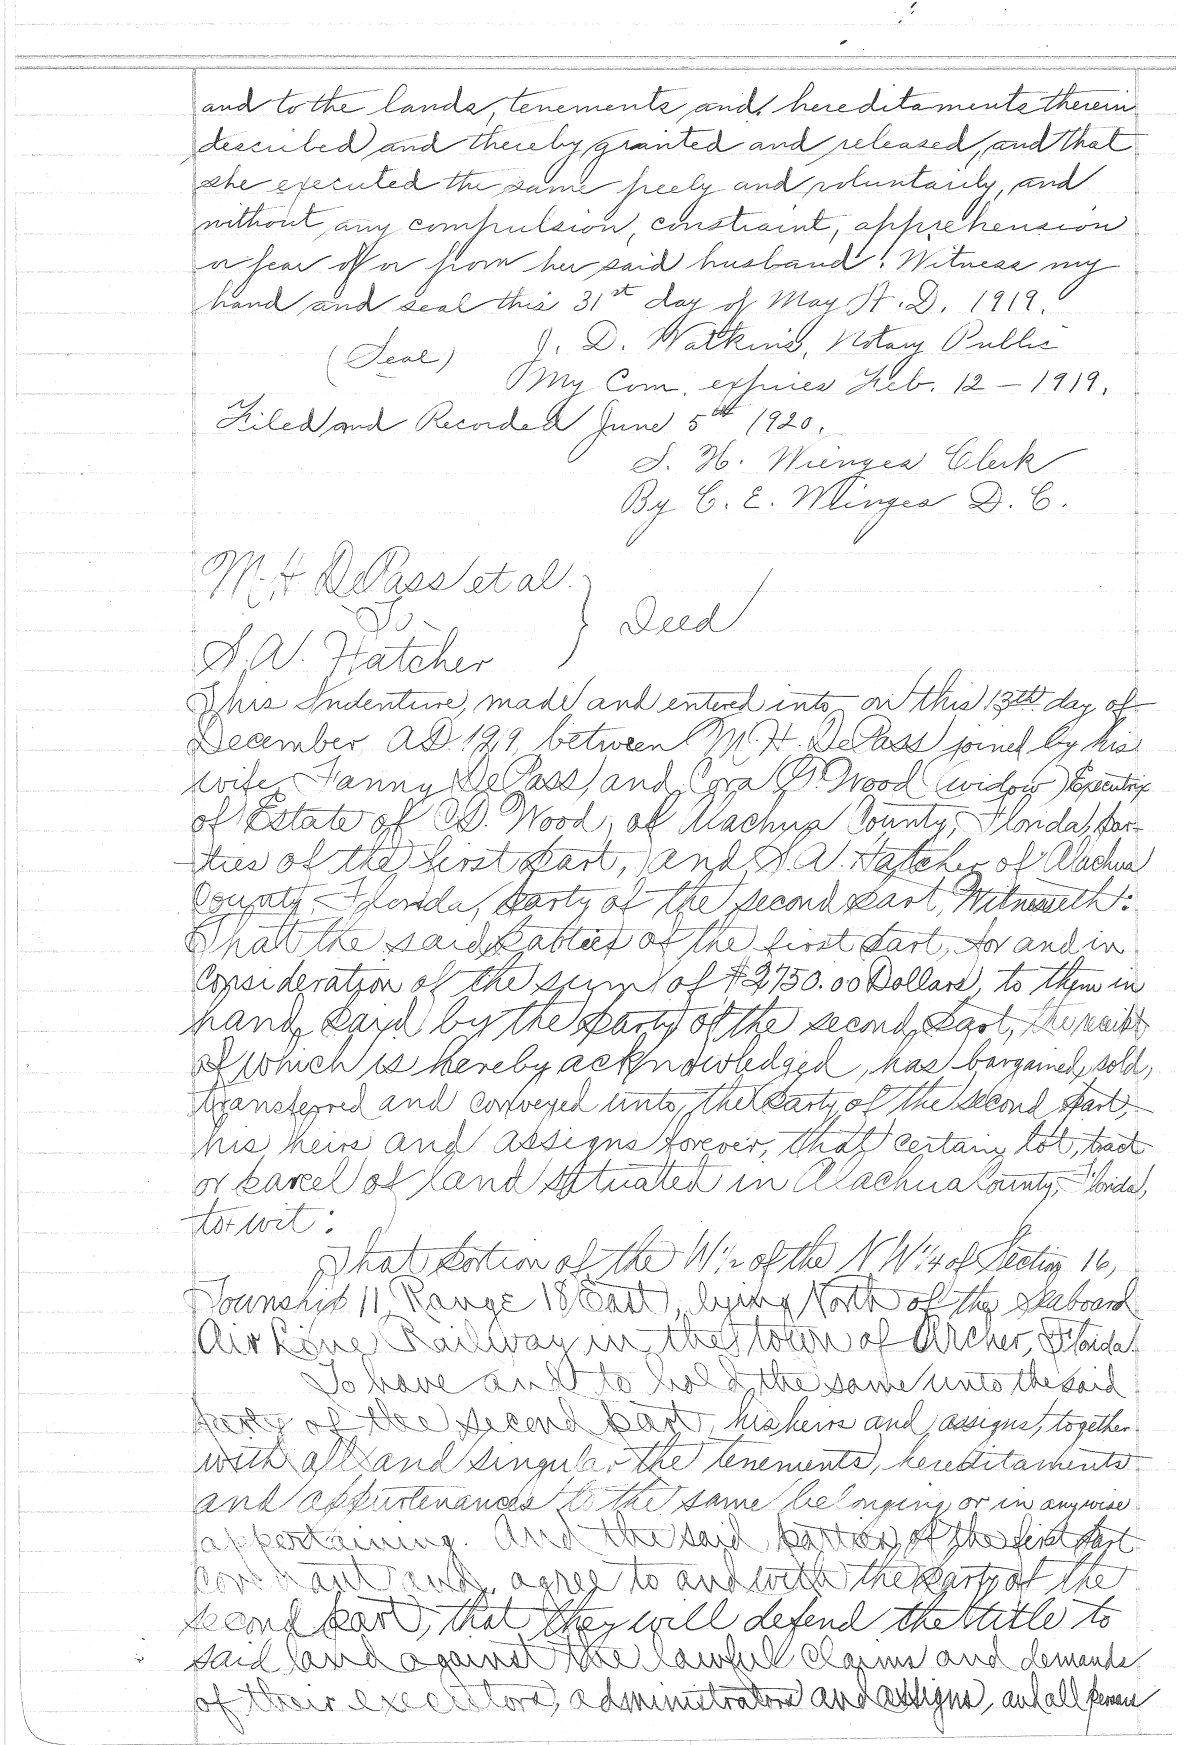 and to the lands, tenements and hereditaments therein
described and thereby granted and released, and that
she executed the same freely and voluntarily, and
without any compulsion, constraint, apprehension
or fear of or from her said husband. Witness my
hand and seal this 31st day of May A.D. 1919.
(Seal) J. D. Watkins, Notary Public
My Com. expires Feb. 12 - 1919.
Filed and Recorded June 5th 1920.
S. H. Wienges Clerk
By C. E. Wienges D. C.
M. H. DePass et al.
To
S. A. Hatcher
} Deed
This Indenture, made and entered into on this 13th day of
December, AD 1919 between M. H. DePass joined by his
wife, Fanny DePass, and Cora G. Wood (widow) Executrix
of Estate of C.D. Wood, of Alachua County, Florida, par-
ties of the first part, and S. A. Hatcher of Alachua
County, Florida, party of the second part, Witnesseth:
That the said parties of the first part, for and in
consideration of the sum of $2750.00 Dollars, to them in
hand paid by the party of the second part, the receipt
of which is hereby acknowledged, has bargained, sold,
transferred and conveyed unto the party of the second part,
his heirs and assigns forever, that certain lot, tract
or parcel of land situated in Alachua County, Florida,
to wit:
That portion of the W 1/2 of the N W 1/4 of Section 16,
Township 11, Range 18 East, lying North of the Seaboard
Air Line Railway in the town of Archer, Florida.
To have and to hold the same unto the said
party of the second part, his heirs and assigns, together
with all and singular the tenements, hereditaments
and appurtenances to the same belonging or in anywise
appertaining. And the said parties of the first part
covenant and agree to and with the party of the
second part, that they will defend the title to
said land against the lawful claims and demands
of their executors, administrators and assigns, and all persons